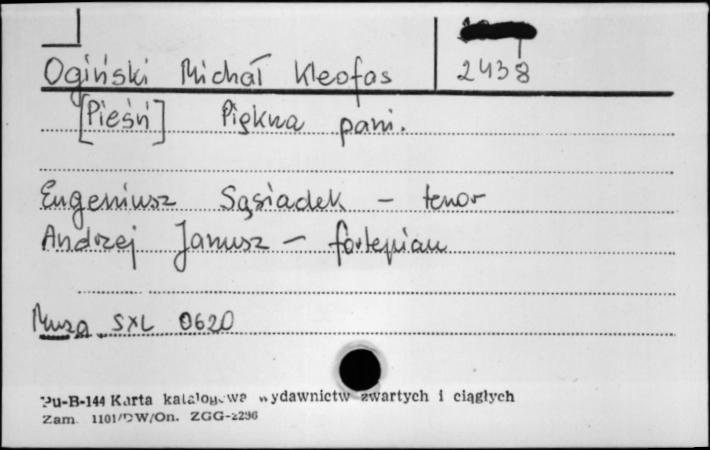 Ogiński Michał Kleofas 2438
[Pieśń] Piękna pani.
Eugeniusz Sąsiadek – tenor
Andrzej Janusz – fortepian
Muza SXL 0620
Pu-B-144 Karta katalogowa wydawnictw zwartych i ciągłych
Zam. 1101/DW/On. ZGG-2296